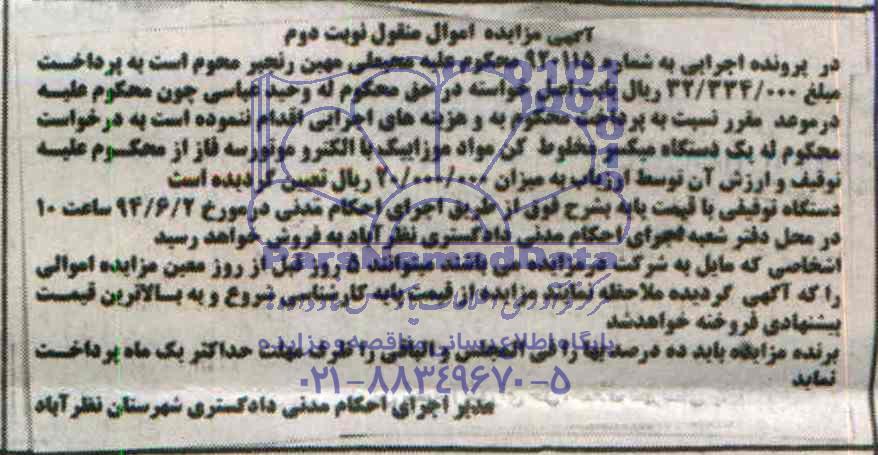 آگهی مزایده اموال منقول نوبت دوم
در پرونده اجرایی به شماره ۹۲۰۱۱۵ محکوم علیه مصطفی مهین رنجبر محوم است به پرداخت
مبلغ ۳۲/۳۳۴/۰۰۰ ریال بابت اصل خواسته در حق محکوم له وحید عباسی چون محکوم علیه
درموعد مقرر نسبت به پرداخت محکوم به و هزینه های اجرایی اقدام ننموده است به درخواست
محکوم له یک دستگاه میکسر مخلوط کن مواد موزاییک با الکترو موتور سه فاز از محکوم علیه
توقیف و ارزش آن توسط ارزیاب به میزان ۲۰/۰۰۰/۰۰۰ ریال تعیین گردیده است
دستگاه توقیفی با قیمت پایه بشرح فوق از طریق اجرای احکام مدنی درمورخ ۹۴/۶/۲ ساعت ۱۰
در محل دفتر شعبه اجرای احکام مدنی دادگستری نظرآباد به فروش خواهد رسید
اشخاصی که مایل به شرکت در مزایده می باشند میتوانند ۵ روز قبل از روز معین مزایده اموالی
را که آگهی گردیده ملاحظه نمایند مزایده از قیمت پایه کارشناسی شروع و به بالاترین قیمت
پیشنهادی فروخته خواهدشد
برنده مزایده باید ده درصد بها را فی المجلس و الباقی را ظرف مهلت حداکثر یک ماه پرداخت
نماید
مدیر اجرای احکام مدنی دادگستری شهرستان نظرآباد
ParsNamadData
پایگاه اطلاع رسانی مناقصه و مزایده
۰۲۱-۸۸۳۴۹۶۷۰-۵